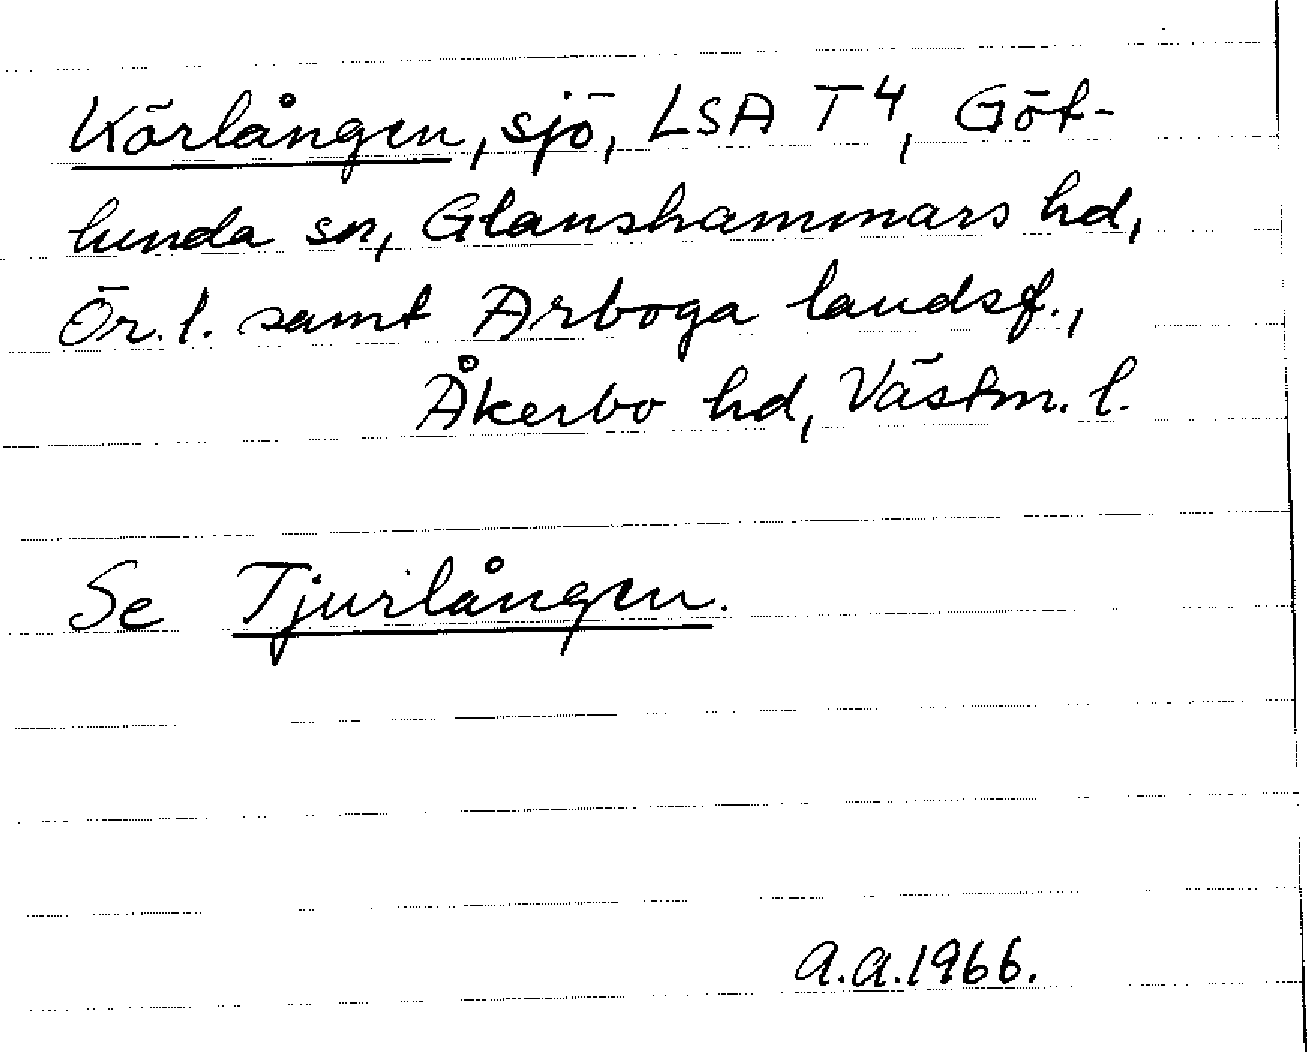 Körlången, sjö, LSA T4, Göt-
lunda sn, Glanshammars hd,
Ör. l. samt Arboga landsf.,
Åkerbo hd, Västm. l.
Se Tjurlången.
A.A.1966.